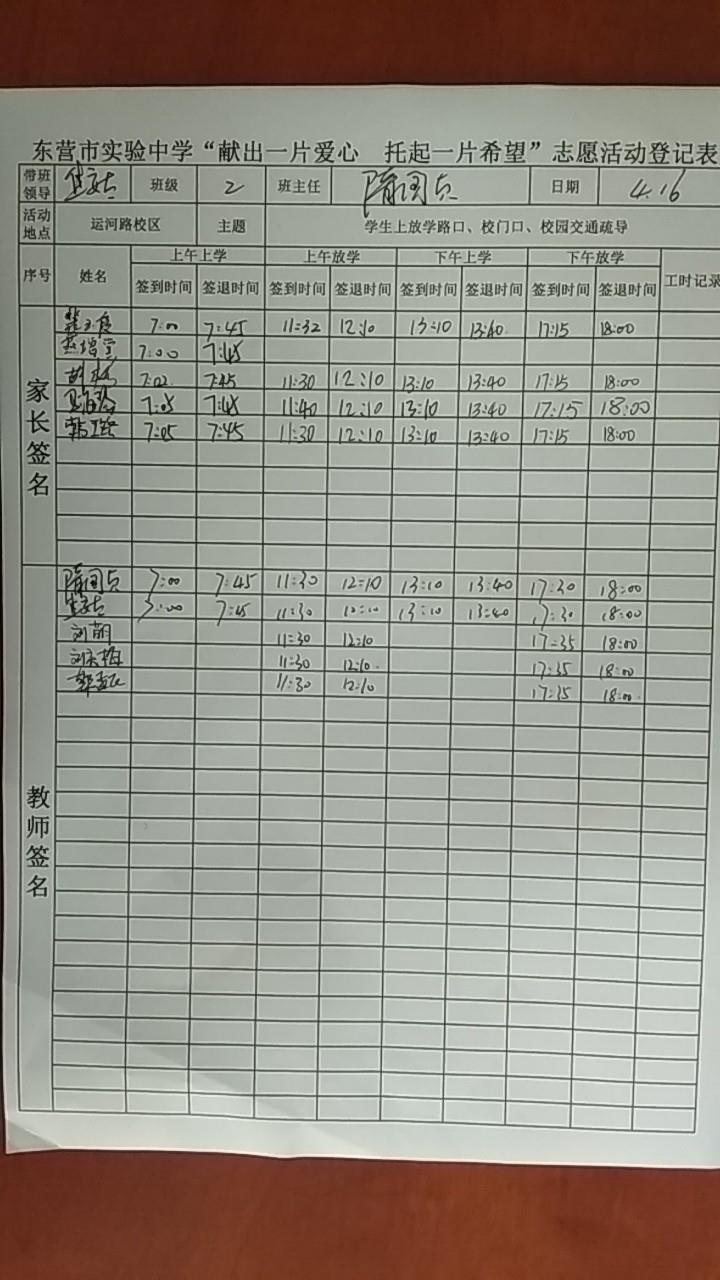 东营市实验中学“献出一片爱心 托起一片希望”志愿活动登记表
带班领导 班级 2 班主任 隋国贞 日期 4.16
活动地点 运河路校区 主题 学生上放学路口、校门口、校园交通疏导
序号 姓名 上午上学 上午放学 下午上学 下午放学 工时记录
签到时间 签退时间 签到时间 签退时间 签到时间 签退时间 签到时间 签退时间
家长签名
7:00 7:45 11:32 12:10 13:10 13:40 17:15 18:00
7:00 7:45
7:02 7:45 11:30 12:10 13:10 13:40 17:15 18:00
7:05 7:45 11:40 12:10 13:10 13:40 17:15 18:00
7:05 7:45 11:30 12:10 13:10 13:40 17:15 18:00
教师签名
隋国贞 7:00 7:45 11:30 12:10 13:10 13:40 17:30 18:00
7:00 7:45 11:30 12:10 13:10 13:40 17:30 18:00
刘萌 11:30 12:10 17:35 18:00
刘庆梅 11:30 12:10 17:35 18:00
11:30 12:10 17:35 18:00